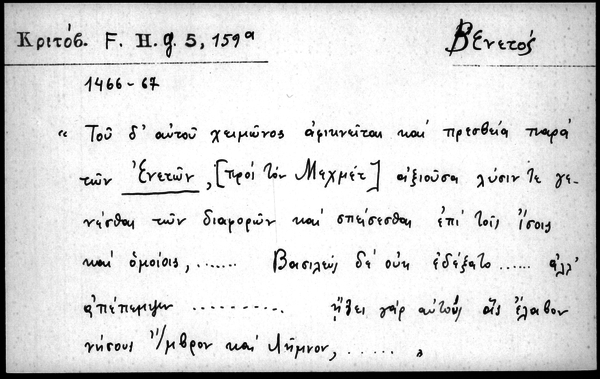 Κριτόβ. F. H. g. 5, 159ª
Βενετός
1466-67
“ Τοῦ δ' αὐτοῦ χειμῶνος ἀφικνεῖται καί πρεσβεία παρά
τῶν Ἑνετῶν, [πρός τόν Μεχμέτ] ἀξιοῦσα λύσιν τε γε-
νέσθαι τῶν διαφορῶν καί σπείσεσθαι ἐπί τοῖς ἴσοις
καί ὁμοίοις, ....... Βασιλεύς δέ οὐκ ἐδέξατο ...... ἀλλ'
ἀπέπεμψεν ........... ᾔτει γάρ αὐτούς ἅς ἔλαβον
νήσους Ἴμβρον καί Λῆμνον, ...... „